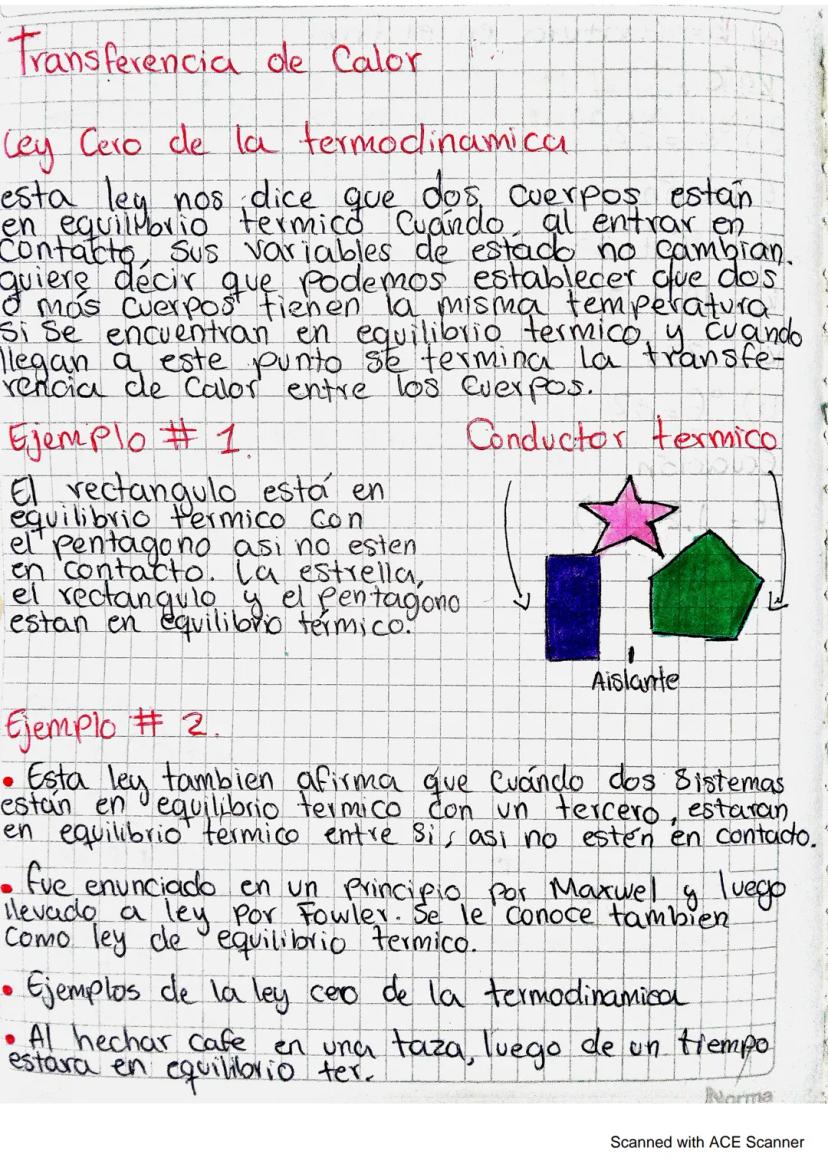 Transferencia de Calor
Ley Cero de la termodinamica
esta ley nos dice que dos cuerpos están
en equilibrio termico Cuándo al entrar en
contacto, sus variables de estado no cambian.
quiere décir que podemos establecer que dos
o más cuerpos tienen la misma temperatura
si se encuentran en equilibrio termico y cuando
llegan a este punto se termina la transfe-
rencia de Calor entre los cuerpos.
Ejemplo # 1.
Conductor termico
El rectangulo está en
equilibrio termico con
el pentagono asi no esten
en contacto. La estrella,
el rectangulo y el pentagono
estan en equilibrio térmico.
Aislante
Ejemplo # 2.
• Esta ley tambien afirma que Cuándo dos Sistemas
están en equilibrio termico con un tercero, estaran
en equilibrio termico entre si, asi no estén en contacto.
• fue enunciado en un principio por Maxwel y luego
llevado a ley por Fowler. Se le conoce tambien
como ley de equilibrio termico.
• Ejemplos de la ley cero de la termodinamica
• Al hechar cafe en una taza, luego de un tiempo
estara en equilibrio ter.
Norma
Scanned with ACE Scanner